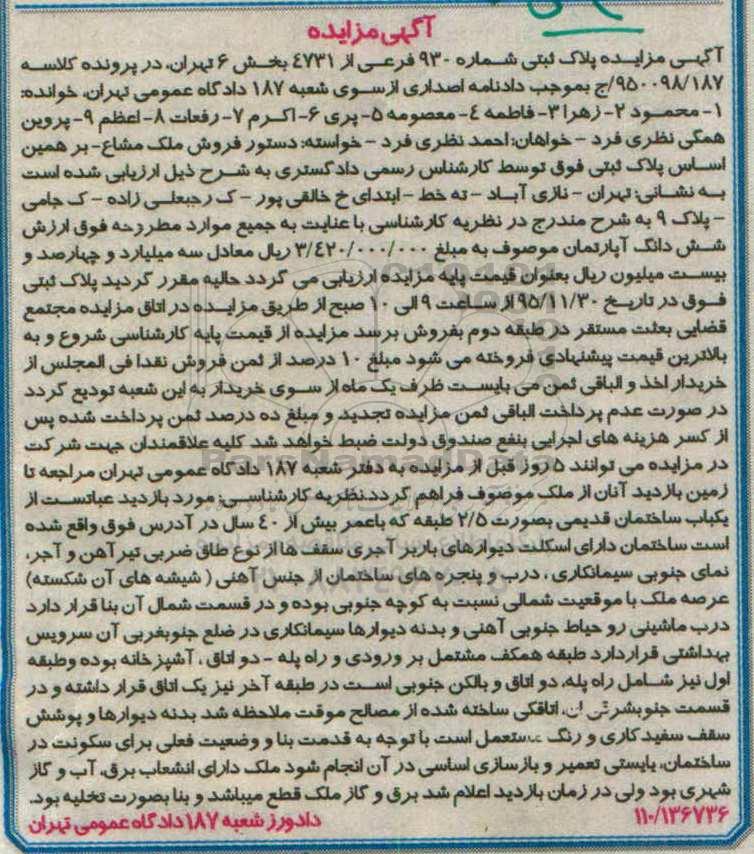 آگهی مزایده
آگهی مزایده پلاک ثبتی شماره ۹۳۰ فرعی از ٤٧٣١ بخش ۶ تهران، در پرونده کلاسه
۹۵۰۰۹۸/۱۸۷/ج بموجب دادنامه اصداری ازسوی شعبه ۱۸۷ دادگاه عمومی تهران، خوانده:
۱- محمود ۲- زهرا ۳- فاطمه ٤- معصومه ۵- پری ۶- اکرم ۷- رفعات ۸- اعظم ۹- پروین
همگی نظری فرد - خواهان: احمد نظری فرد - خواسته: دستور فروش ملک مشاع- بر همین
اساس پلاک ثبتی فوق توسط کارشناس رسمی دادگستری به شرح ذیل ارزیابی شده است
به نشانی: تهران - نازی آباد - ته خط - ابتدای خ خالقی پور - ک رجبعلی زاده - ک جامی
- پلاک ۹ به شرح مندرج در نظریه کارشناسی با عنایت به جمیع موارد مطروحه فوق ارزش
شش دانگ آپارتمان موصوف به مبلغ ۳/٤۲۰/۰۰۰/۰۰۰ ریال معادل سه میلیارد و چهارصد و
بیست میلیون ریال بعنوان قیمت پایه مزایده ارزیابی می گردد حالیه مقرر گردید پلاک ثبتی
فوق در تاریخ ۹۵/۱۱/۳۰ از ساعت ۹ الی ۱۰ صبح از طریق مزایده در اتاق مزایده مجتمع
قضایی بعثت مستقر در طبقه دوم بفروش برسد مزایده از قیمت پایه کارشناسی شروع و به
بالاترین قیمت پیشنهادی فروخته می شود مبلغ ۱۰ درصد از ثمن فروش نقدا فی المجلس از
خریدار اخذ و الباقی ثمن می بایست ظرف یک ماه از سوی خریدار به این شعبه تودیع گردد
در صورت عدم پرداخت الباقی ثمن مزایده تجدید و مبلغ ده درصد ثمن پرداخت شده پس
از کسر هزینه های اجرایی بنفع صندوق دولت ضبط خواهد شد کلیه علاقمندان جهت شرکت
در مزایده می توانند ۵ روز قبل از مزایده به دفتر شعبه ۱۸۷ دادگاه عمومی تهران مراجعه تا
زمین بازدید آنان از ملک موصوف فراهم گردد.نظریه کارشناسی: مورد بازدید عباتست از
یکباب ساختمان قدیمی بصورت ۲/۵ طبقه که باعمر بیش از ٤۰ سال در آدرس فوق واقع شده
است ساختمان دارای اسکلت دیوارهای باربر آجری سقف ها از نوع طاق ضربی تیرآهن و آجر،
نمای جنوبی سیمانکاری ، درب و پنجره های ساختمان از جنس آهنی ( شیشه های آن شکسته)
عرصه ملک با موقعیت شمالی نسبت به کوچه جنوبی بوده و در قسمت شمال آن بنا قرار دارد
درب ماشینی رو حیاط جنوبی آهنی و بدنه دیوارها سیمانکاری در ضلع جنوبغربی آن سرویس
بهداشتی قراردارد طبقه همکف مشتمل بر ورودی و راه پله - دو اتاق ، آشپزخانه بوده وطبقه
اول نیز شامل راه پله، دو اتاق و بالکن جنوبی است در طبقه آخر نیز یک اتاق قرار داشته و در
قسمت جنوبشرقی آن، اتاقکی ساخته شده از مصالح موقت ملاحظه شد بدنه دیوارها و پوشش
سقف سفیدکاری و رنگ مستعمل است با توجه به قدمت بنا و وضعیت فعلی برای سکونت در
ساختمان، بایستی تعمیر و بازسازی اساسی در آن انجام شود ملک دارای انشعاب برق، آب و گاز
شهری بود ولی در زمان بازدید اعلام شد برق و گاز ملک قطع میباشد و بنا بصورت تخلیه بود.
۱۱۰/۱۳۶۷۳۶ دادورز شعبه ۱۸۷ دادگاه عمومی تهران
ParsNamadData